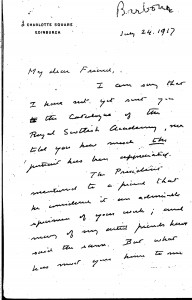 Barbour
CHARLOTTE SQUARE
EDINBURGH
July 24. 1917
My dear Friend,
I am sorry that
I have not yet sent you
the Catalogue of the
Royal Scottish Academy, nor
told you how much the
portrait has been appreciated.
The President
mentioned to a friend that
he considers it an admirable
specimen of your work; and
many of my artist friends have
said the same. But what
has most gone home to me